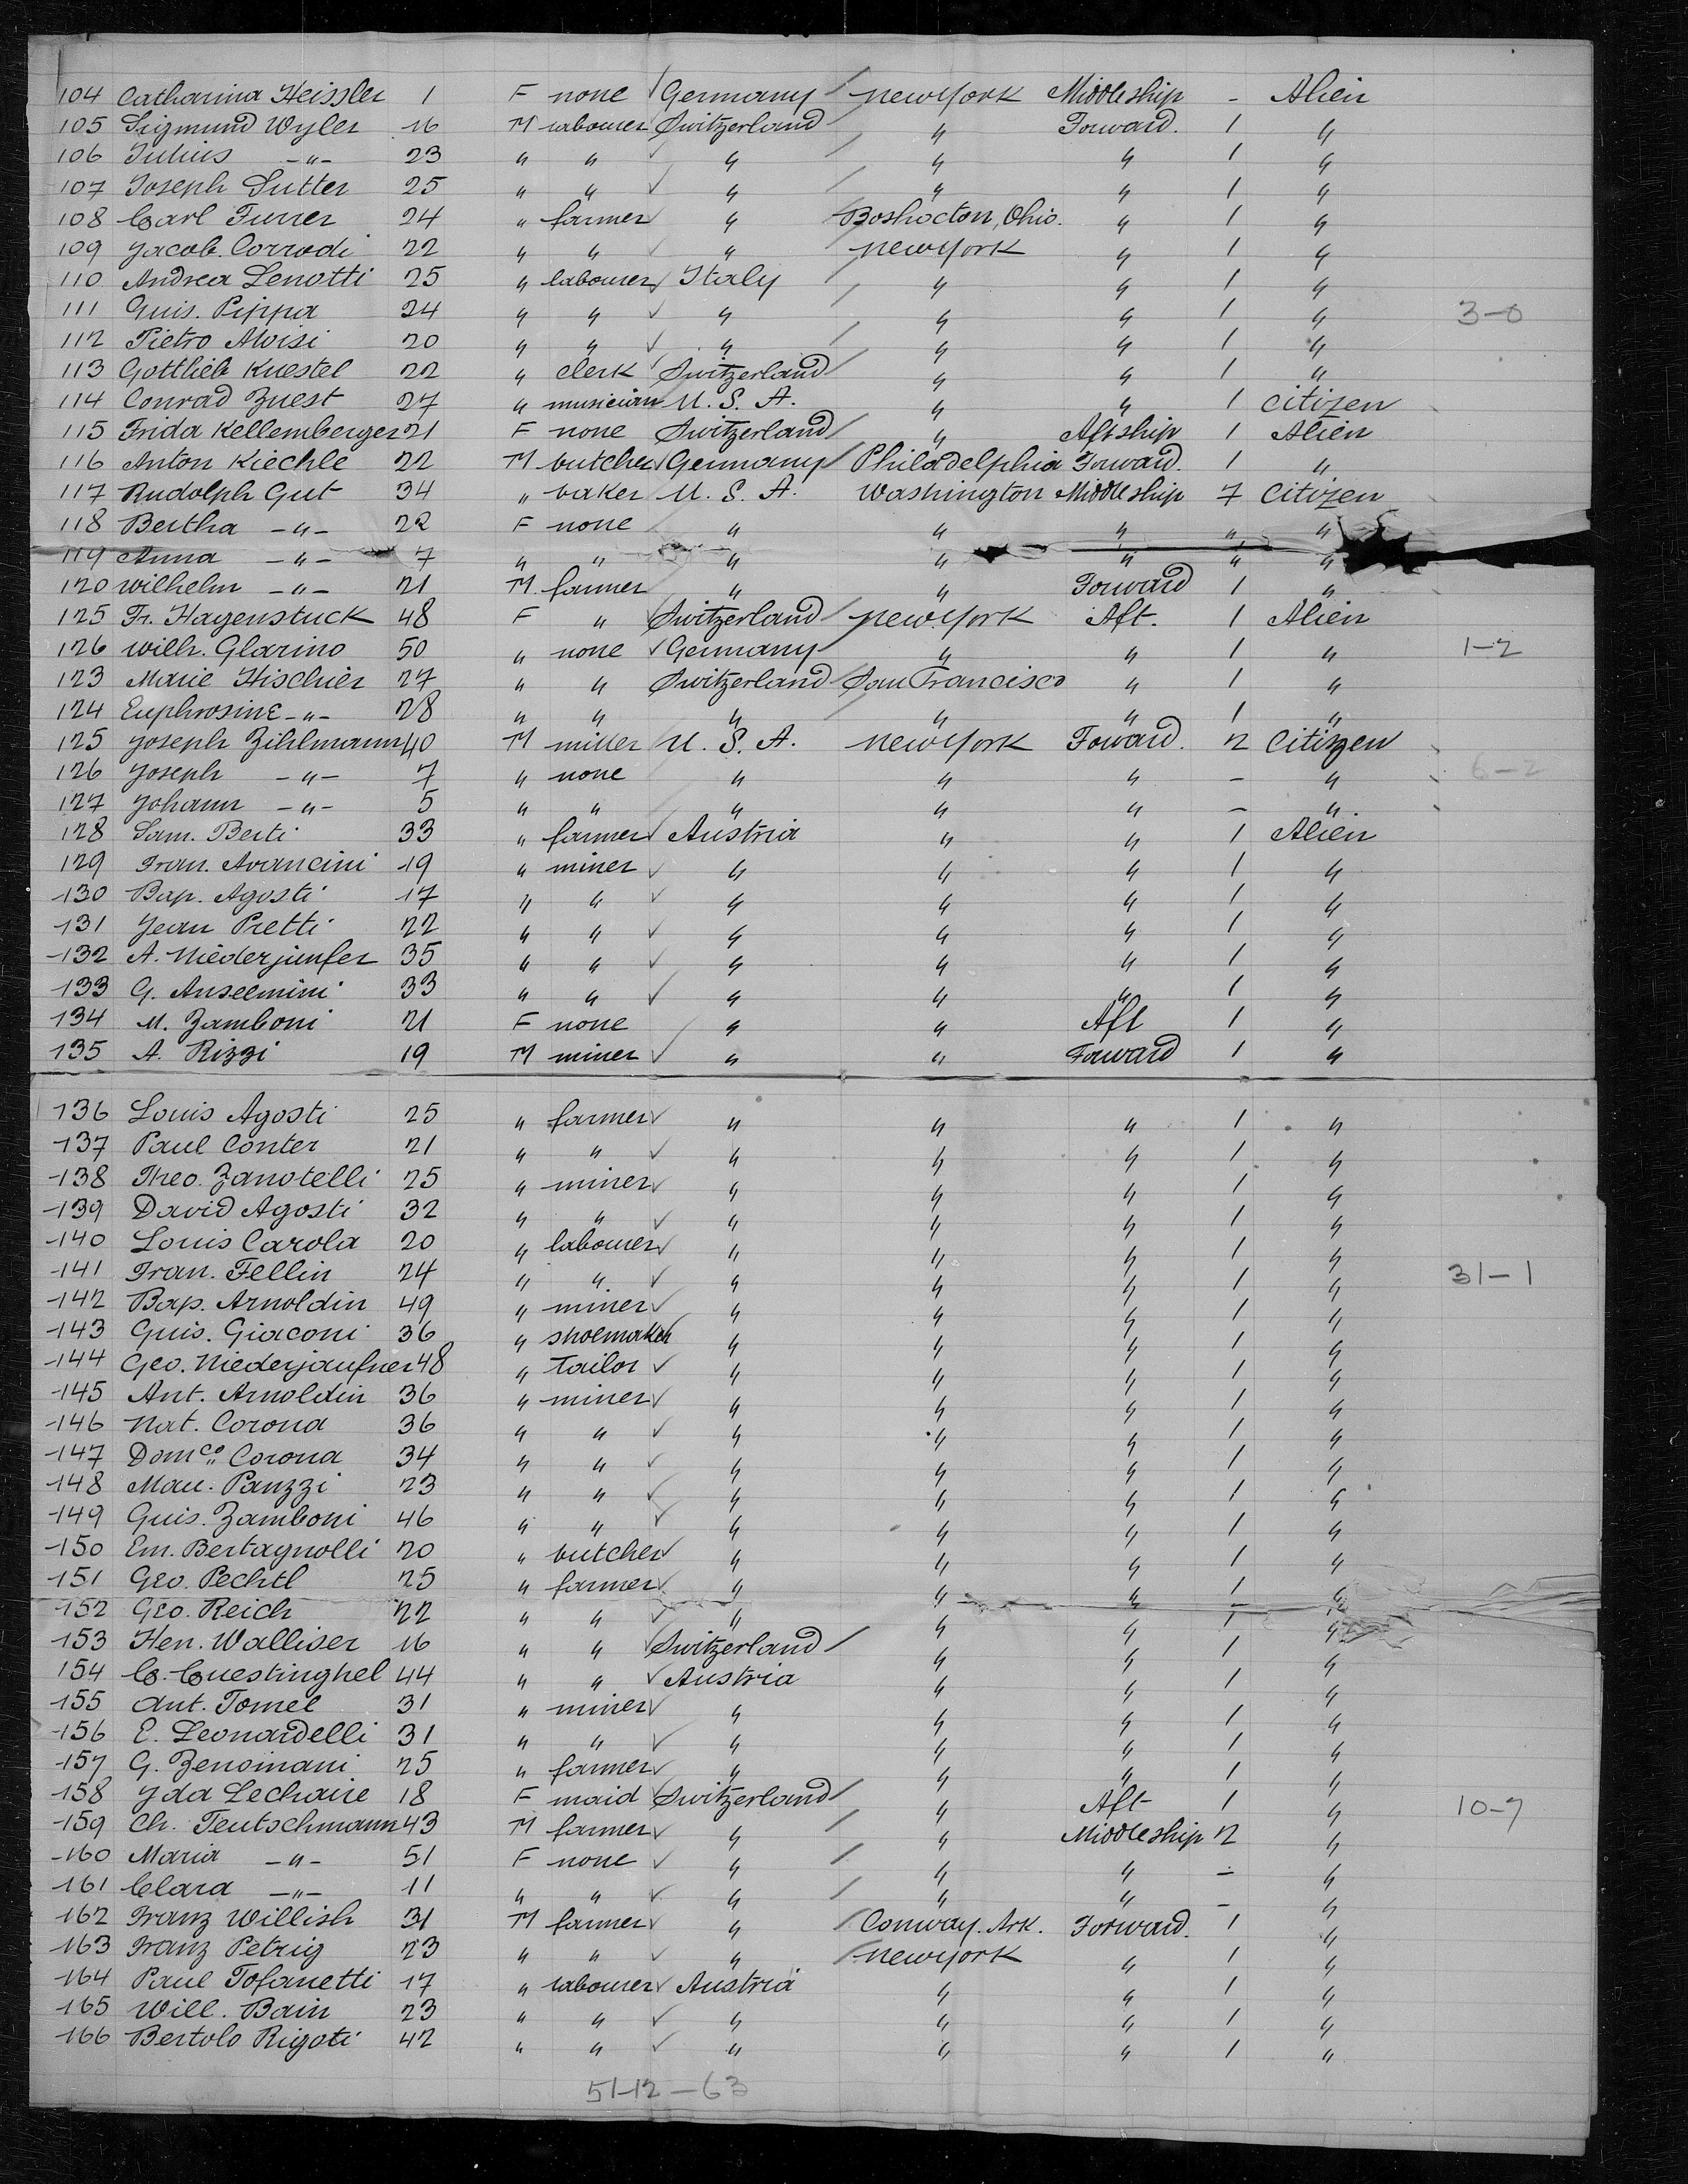 104 Catharina Heissler 1 F none Germany New York Middleship - Alien
105 Sigmund Wyler 16 M labourer Switzerland " Forward. 1 "
106 Julius -"- 23 " " " " " 1 "
107 Joseph Sutter 25 " " " " " 1 "
108 Carl Furrer 24 " farmer " Boshocton, Ohio. " 1 "
109 Jacob. Corrodi 22 " " " New York " 1 "
110 Andrea Lenotti 25 " labourer Italy " " 1 "
111 Guis. Pippa 24 " " " " " 1 " 3-0
112 Pietro Moisi 20 " " " " " 1 "
113 Gottlieb Kuestel 22 " clerk Switzerland " " 1 "
114 Conrad Zuest 27 " musician U. S. A. " " 1 Citizen
115 Frida Kellemberger 21 F none Switzerland " Aftship 1 Alien
116 Anton Kiechle 22 M butcher Germany Philadelphia Forward. 1 "
117 Rudolph Gut 34 " baker U. S. A. Washington Middleship 7 Citizen
118 Bertha -"- 22 F none " " " " "
119 Anna -"- 7 " " " " " " "
120 Wilhelm -"- 21 M. farmer " " Forward 1 "
125 Fr. Hagenstuck 48 F " Switzerland New York Aft. 1 Alien
126 Wilh. Glarino 50 " none Germany " " 1 " 1-2
123 Marie Hischier 27 " " Switzerland San Francisco " 1 "
124 Euphrosine -"- 28 " " " " " 1 "
125 Joseph Zihlmann 40 M miller U. S. A. New York Foward. 2 Citizen
126 Joseph -"- 7 " none " " " - " 6-2
127 Johann -"- 5 " " " " " - "
128 Sam. Berti 33 " farmer Austria " " 1 Alien
129 Fran. Avancini 19 " miner " " " 1 "
130 Bap. Agosti 17 " " " " " 1 "
131 Jean Pretti 22 " " " " " 1 "
132 A. Niederjunfer 35 " " " " " 1 "
133 G. Anselmini 33 " " " " " 1 "
134 M. Zamboni 21 F none " " Aft 1 "
135 A. Rizzi 19 M miner " " Forward 1 "
136 Louis Agosti 25 " farmer " " " 1 "
137 Paul Conter 21 " " " " " 1 "
138 Theo. Zanotelli 25 " miner " " " 1 "
139 David Agosti 32 " " " " " 1 "
140 Louis Carola 20 " labourer " " " 1 "
141 Fran. Fellin 24 " " " " " 1 " 31-1
142 Bap. Arnoldin 49 " miner " " " 1 "
143 Guis. Giaconi 36 " shoemaker " " " 1 "
144 Geo. Niederjaufner 48 " Tailor " " " 1 "
145 Ant. Arnoldin 36 " miner " " " 1 "
146 Nat. Corona 36 " " " " " 1 "
147 Domco. Corona 34 " " " " " 1 "
148 Mau. Panzzi 23 " " " " " 1 "
149 Guis. Zamboni 46 " " " " " 1 "
150 Em. Bertagnolli 20 " butcher " " " 1 "
151 Geo. Pechtl 25 " farmer " " " 1 "
152 Geo. Reich 22 " " " " " 1 "
153 Hen. Walliser 16 " " Switzerland " " 1 "
154 C. Cuestinghel 44 " " Austria " " 1 "
155 Ant. Tomel 31 " miner " " " 1 "
156 E. Leonardelli 31 " " " " " 1 "
157 G. Zenoniani 25 " farmer " " " 1 "
158 Yda Lechaire 18 F maid Switzerland " Aft 1 " 10-7
159 Ch. Teutschmann 43 M farmer " " Middleship 2 "
160 Maria -"- 51 F none " " " - "
161 Clara -"- 11 " " " " " - "
162 Franz Willish 31 M farmer " Conway. Ark. Forward. 1 "
163 Franz Petrig 23 " " " New York " 1 "
164 Paul Tofanetti 17 " labourer Austria " " 1 "
165 Will. Bain 23 " " " " " 1 "
166 Bertolo Rigoti 42 " " " " " 1 "
51-12-63